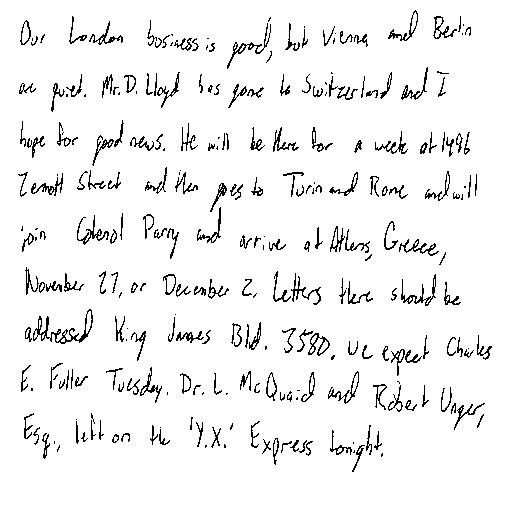 Our London business is good, but Vienna and Berlin
are quiet. Mr. D. Lloyd has gone to Switzerland and I
hope for good news. He will be there for a week at 1496
Zermott Street and then goes to Turin and Rome and will
join Colonel Parry and arrive at Athens, Greece,
November 27, or December 2. Letters there should be
addressed King James Bld. 3580. We expect Charles
E. Fuller Tuesday. Dr. L. McQuaid and Robert Unger,
Esq., left on the 'Y.X.' Express tonight.